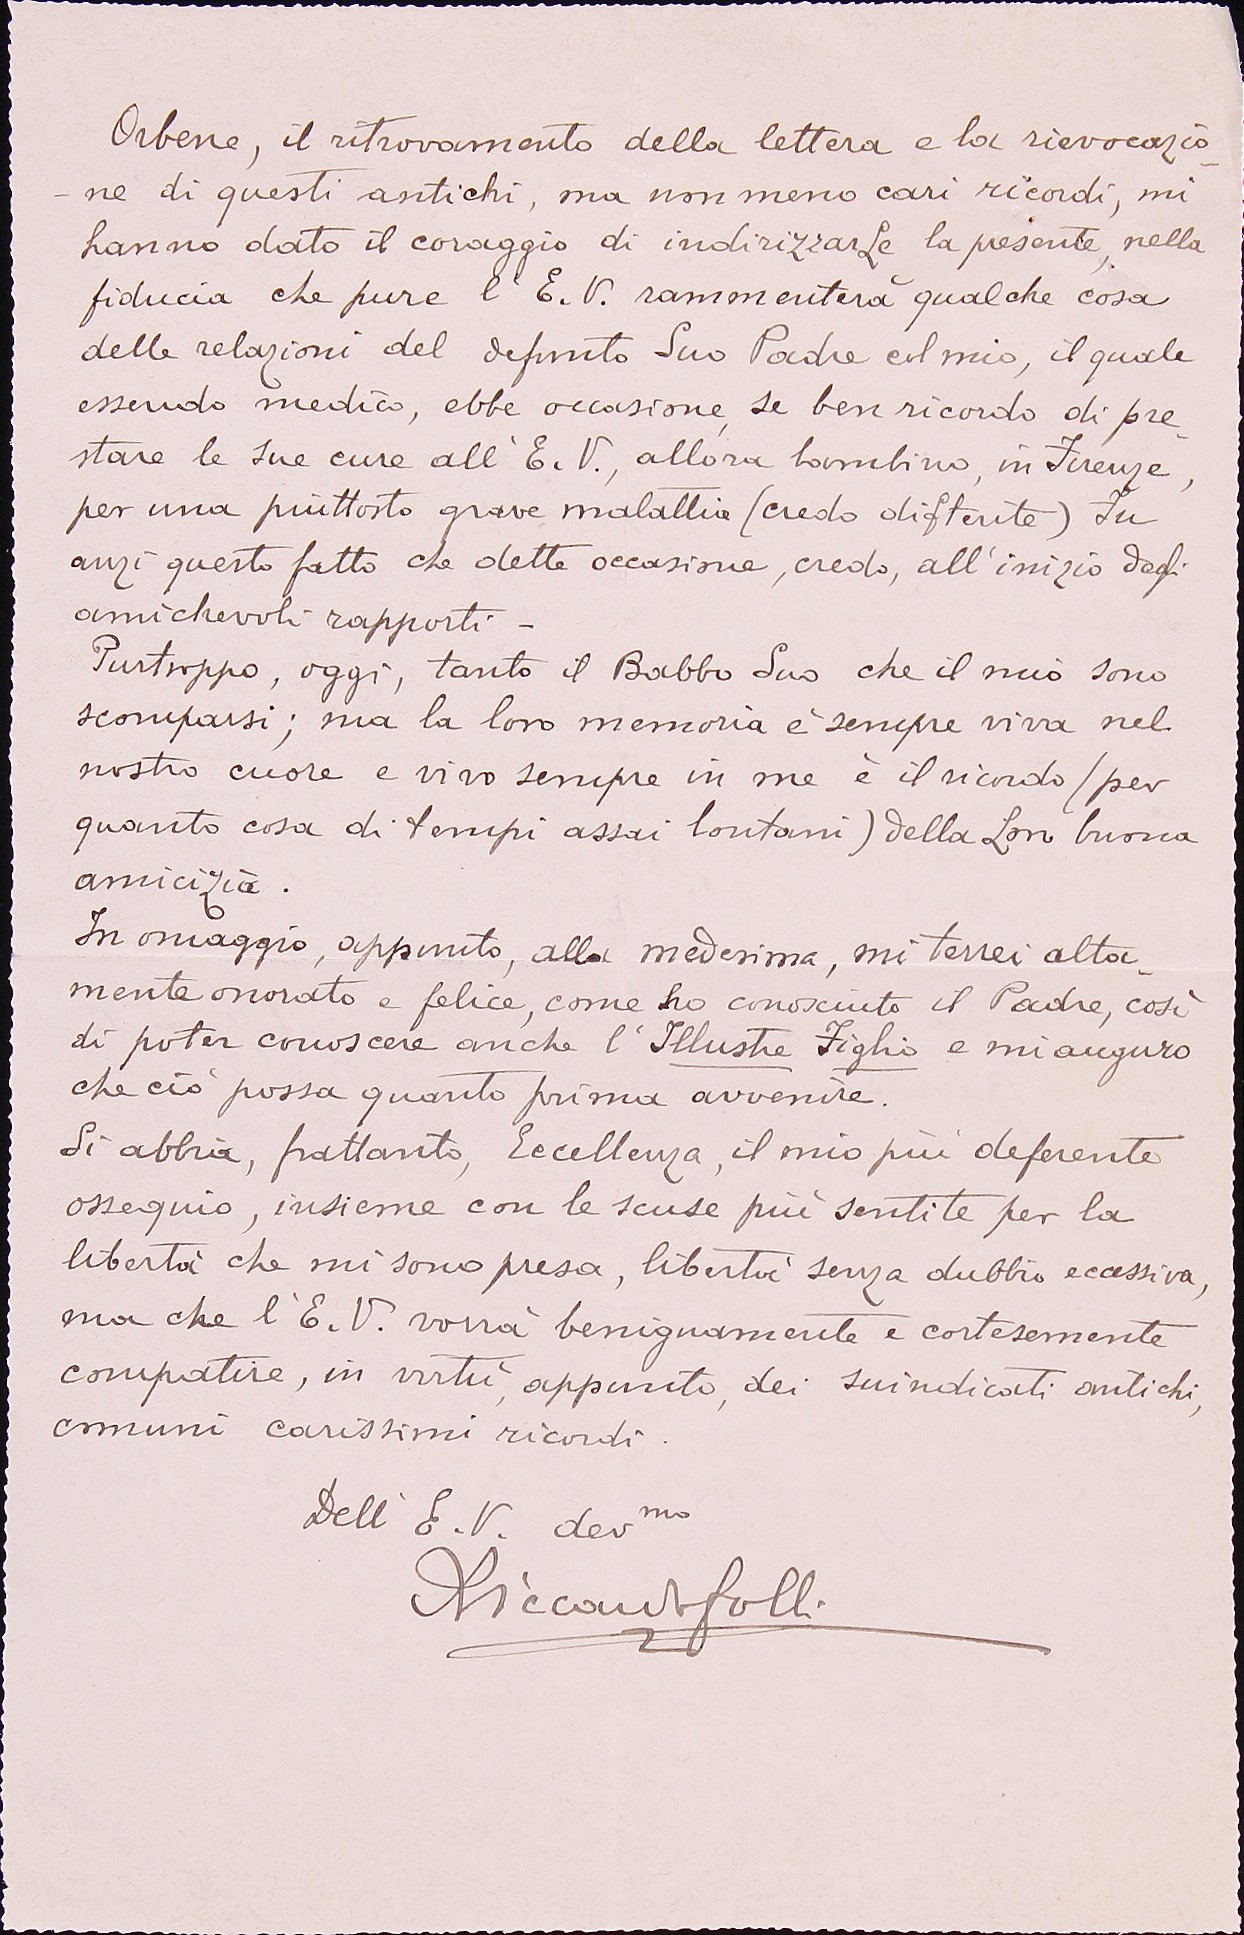 Orbene, il ritrovamento della lettera e la rievocazio-
-ne di questi antichi, ma non meno cari ricordi, mi
hanno dato il coraggio di indirizzarLe la presente, nella
fiducia che pure l'E.V. rammenterà qualche cosa
delle relazioni del defunto Suo Padre col mio, il quale
essendo medico, ebbe occasione, se ben ricordo di pre-
stare le sue cure all'E.V., allora bambino, in Firenze,
per una piuttosto grave malattia (credo difterite) Fu
anzi questo fatto che dette occasione, credo, all'inizio degli
amichevoli rapporti -
Purtroppo, oggi, tanto il Babbo Suo che il mio sono
scomparsi; ma la loro memoria è sempre viva nel
nostro cuore e vivo sempre in me è il ricordo (per
quanto cosa di tempi assai lontani) della Loro buona
amicizia.
In omaggio, appunto, alla medesima, mi terrei alta-
mente onorato e felice, come ho conosciuto il Padre, così
di poter conoscere anche l'Illustre Figlio e mi auguro
che ciò possa quanto prima avvenire.
Si abbia, frattanto, Eccellenza, il mio più deferente
ossequio, insieme con le scuse più sentite per la
libertà che mi sono presa, libertà senza dubbio eccessiva,
ma che l'E.V. vorrà benignamente e cortesemente
compatire, in virtù, appunto, dei suindicati antichi,
comuni carissimi ricordi.
Dell'E.V. dev mo
Riccardo Folli